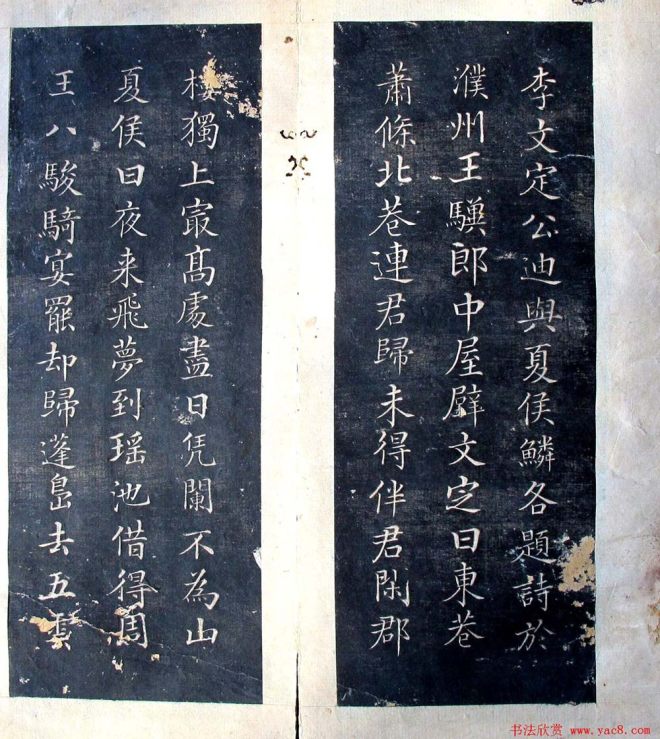 李文定公迪與夏侯鱗各題詩於
濮州王騻郎中屋壁文定曰東巷
蕭條北巷連君歸未得伴君閑郡
樓獨上冣髙處盡日凭闌不為山
夏侯曰夜来飛夢到瑶池借得周
王八駿騎宴罷却歸蓬島去五雲
书法欣赏 www.yac8.com